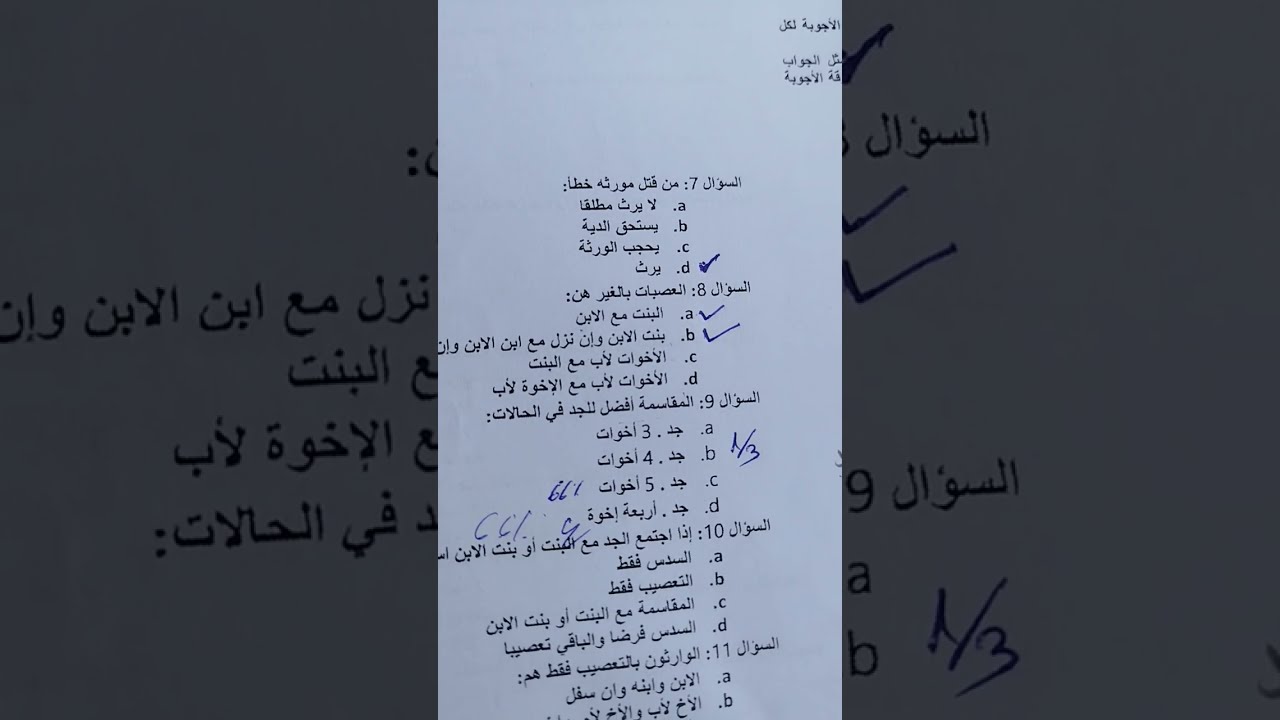 الأجوبة لكل
الجواب
الأجوبة
السؤال 7: من قتل مورثه خطأ:
a. لا يرث مطلقا
b. يستحق الدية
c. يحجب الورثة
d. يرث
السؤال 8: العصبات بالغير هن:
a. البنت مع الابن
b. بنت الابن وإن نزل مع ابن الابن وإن
c. الأخوات لأب مع البنت
d. الأخوات لأب مع الإخوة لأب
السؤال 9: المقاسمة أفضل للجد في الحالات:
a. جد . 3 أخوات
b. جد . 4 أخوات
1/3
c. جد . 5 أخوات
d. جد . أربعة إخوة
السؤال 10: إذا اجتمع الجد مع البنت أو بنت الابن
a. السدس فقط
b. التعصيب فقط
c. المقاسمة مع البنت أو بنت الابن
d. السدس فرضا والباقي تعصيبا
السؤال 11: الوارثون بالتعصيب فقط هم:
a. الابن وابنه وان سفل
b. الأخ لأب والأخ